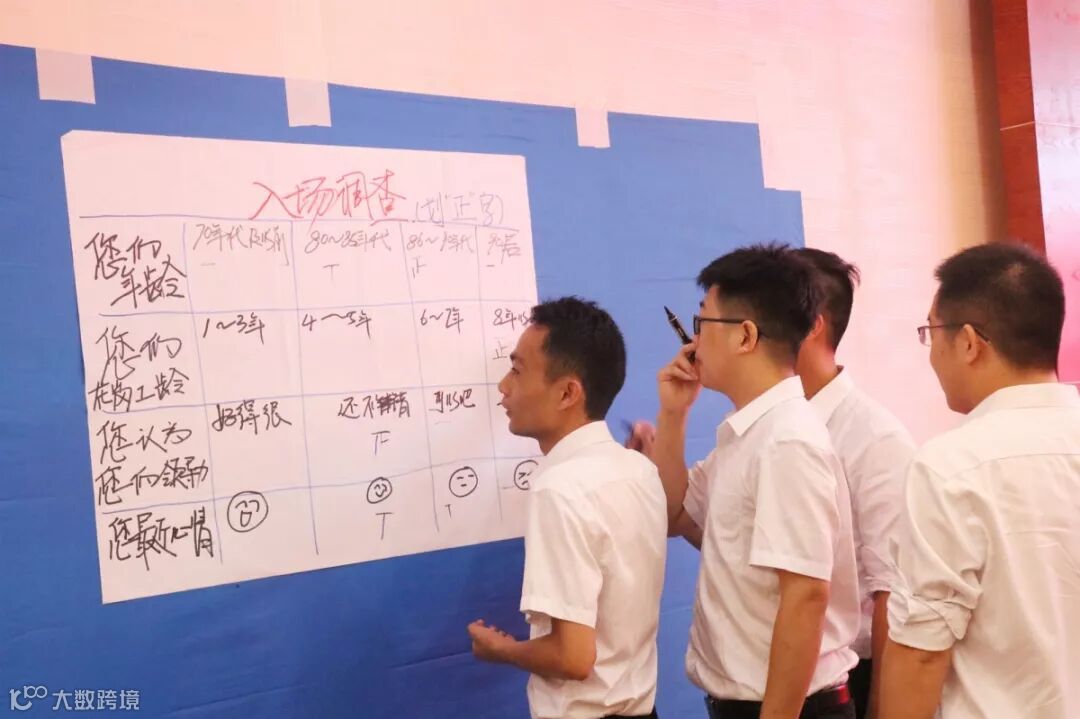 入场调查 (划"正"字)
您们年龄 70年代及以前 80~85年代 86~90年代 90后
一 T 正 一
您们在岗工龄 1~3年 4~5年 6~7年 8年以
正
您认为您们领导 好得很 还不错 可以吧
下 一
您最近心情
T T
大数跨境